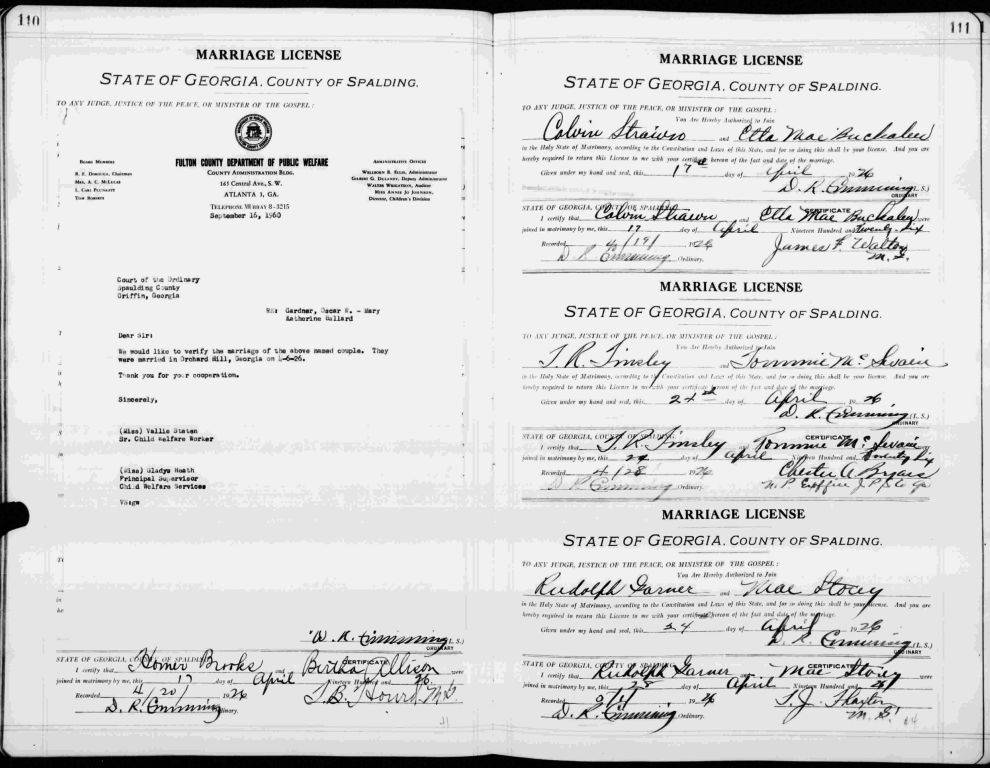 110
MARRIAGE LICENSE
STATE OF GEORGIA, COUNTY OF SPALDING.
TO ANY JUDGE, JUSTICE OF THE PEACE, OR MINISTER OF THE GOSPEL:
FULTON COUNTY DEPARTMENT OF PUBLIC WELFARE
COUNTY ADMINISTRATION BLDG.
165 Central Ave., S. W.
ATLANTA 3, GA.
TELEPHONE MURRAY 8-3215
September 16, 1960
BOARD MEMBERS
R. F. DOROUGH, Chairman
MRS. A. C. MCLUCAS
L. CARL PLUNKETT
TOM ROBERTS
ADMINISTRATIVE OFFICES
WELLBORN R. ELLIS, Administrator
GILBERT G. DULANEY, Deputy Administrator
WALTER WRIGHTSON, Auditor
MISS ANNIE JO JOHNSON,
Director, Children's Division
Court of the Ordinary
Spaulding County
Griffin, Georgia
RE: Gardner, Oscar W. - Mary
Katherine Ballard
Dear Sir:
We would like to verify the marriage of the above named couple. They
were married in Orchard Hill, Georgia on 4-6-26.
Thank you for your cooperation.
Sincerely,
(Miss) Vallie Staten
Sr. Child Welfare Worker
(Miss) Gladys Heath
Principal Supervisor
Child Welfare Services
VS:gw
D. R. Cumming (L. S.)
ORDINARY
CERTIFICATE
STATE OF GEORGIA, COUNTY OF SPALDING.
I certify that Homer Brooks and Bertha Allison were
joined in matrimony by me, this 17 day of April Nineteen Hundred and 26.
Recorded 4/20/ 1926
D. R. Cumming Ordinary.
111
MARRIAGE LICENSE
STATE OF GEORGIA, COUNTY OF SPALDING.
TO ANY JUDGE, JUSTICE OF THE PEACE, OR MINISTER OF THE GOSPEL:
You Are Hereby Authorized to Join
Colvin Strawn and Etta Mae Buchalew
in the Holy State of Matrimony, according to the Constitution and Laws of this State, and for so doing this shall be your license. And you are
hereby required to return this License to me with your certificate hereon of the fact and date of the marriage.
Given under my hand and seal, this 17th day of April 1926
D. R. Cumming (L. S.)
ORDINARY
CERTIFICATE
STATE OF GEORGIA, COUNTY OF SPALDING.
I certify that Colvin Strawn and Etta Mae Buchalew were
joined in matrimony by me, this 17 day of April Nineteen Hundred and twenty-six
Recorded 4/19/ 1926 James F. Walton
D. R. Cumming Ordinary. M. G.
MARRIAGE LICENSE
STATE OF GEORGIA, COUNTY OF SPALDING.
TO ANY JUDGE, JUSTICE OF THE PEACE, OR MINISTER OF THE GOSPEL:
You Are Hereby Authorized to Join
T. R. Tinsley and Tommie McSwain
in the Holy State of Matrimony, according to the Constitution and Laws of this State, and for so doing this shall be your license. And you are
hereby required to return this License to me with your certificate hereon of the fact and date of the marriage.
Given under my hand and seal, this 24 day of April 1926
D. R. Cumming (L. S.)
ORDINARY
CERTIFICATE
STATE OF GEORGIA, COUNTY OF SPALDING.
I certify that T. R. Tinsley and Tommie McSwain were
joined in matrimony by me, this 24 day of April Nineteen Hundred and twenty six
Recorded 4/28 1926 Chester A.
D. R. Cumming Ordinary. N. P.
MARRIAGE LICENSE
STATE OF GEORGIA, COUNTY OF SPALDING.
TO ANY JUDGE, JUSTICE OF THE PEACE, OR MINISTER OF THE GOSPEL:
You Are Hereby Authorized to Join
Rudolph Garner and Mae Storey
in the Holy State of Matrimony, according to the Constitution and Laws of this State, and for so doing this shall be your license. And you are
hereby required to return this License to me with your certificate hereon of the fact and date of the marriage.
Given under my hand and seal, this 24 day of April 1926
D. R. Cumming (L. S.)
ORDINARY
CERTIFICATE
STATE OF GEORGIA, COUNTY OF SPALDING.
I certify that Rudolph Garner and Mae Storey were
joined in matrimony by me, this 28 day of April Nineteen Hundred and 26
Recorded 1926
D. R. Cumming Ordinary.